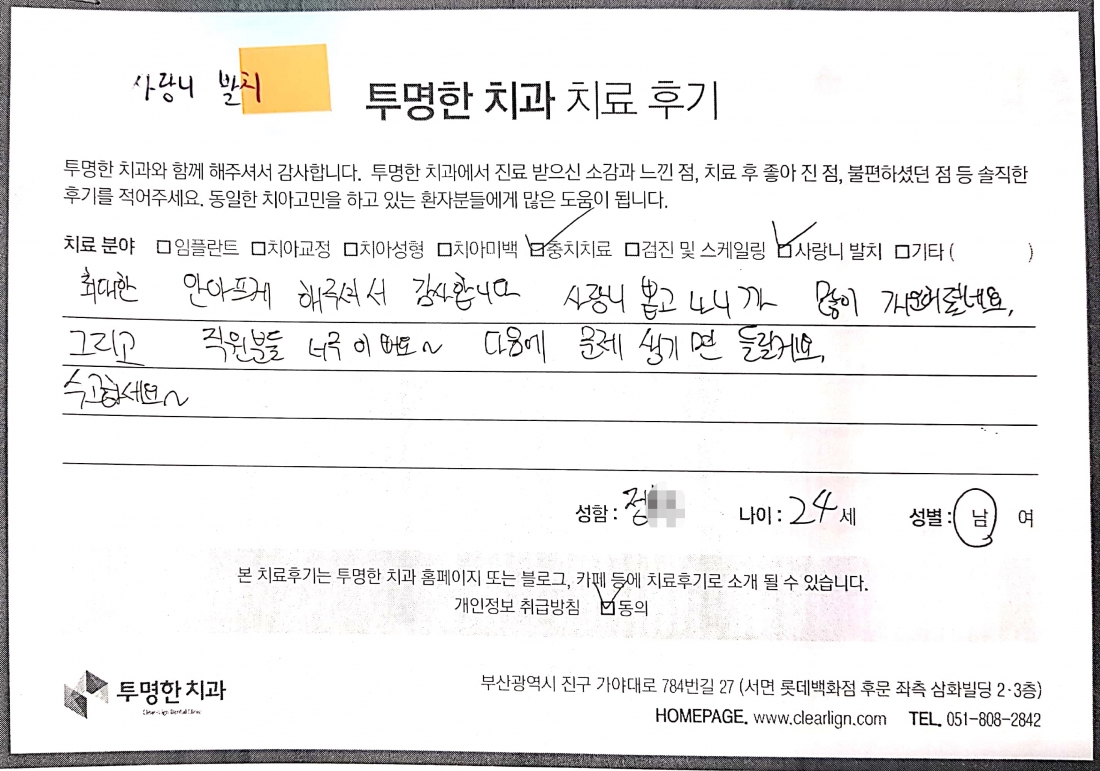 사랑니 발치
투명한 치과 치료 후기
투명한 치과와 함께 해주셔서 감사합니다. 투명한 치과에서 진료 받으신 소감과 느낀 점, 치료 후 좋아 진 점, 불편하셨던 점 등 솔직한
후기를 적어주세요. 동일한 치아고민을 하고 있는 환자분들에게 많은 도움이 됩니다.
치료 분야 □임플란트 □치아교정 □치아성형 □치아미백 ☑충치치료 □검진 및 스케일링 ☑사랑니 발치 □기타 ( )
최대한 안아프게 해주셔서 감사합니다 사랑니 뽑고 나니까 많이 개운해졌네요,
그리고 직원분들 너무 이뻐요~ 다음에 문제 생기면 들릴게요,
수고하세요~
성함 : 정 나이 : 24 세 성별 : 남 여
본 치료후기는 투명한 치과 홈페이지 또는 블로그, 카페 등에 치료후기로 소개 될 수 있습니다.
개인정보 취급방침 ☑동의
투명한 치과
Clear-Lign Dental Clinic
부산광역시 진구 가야대로 784번길 27 (서면 롯데백화점 후문 좌측 삼화빌딩 2·3층)
HOMEPAGE. www.clearlign.com TEL. 051-808-2842